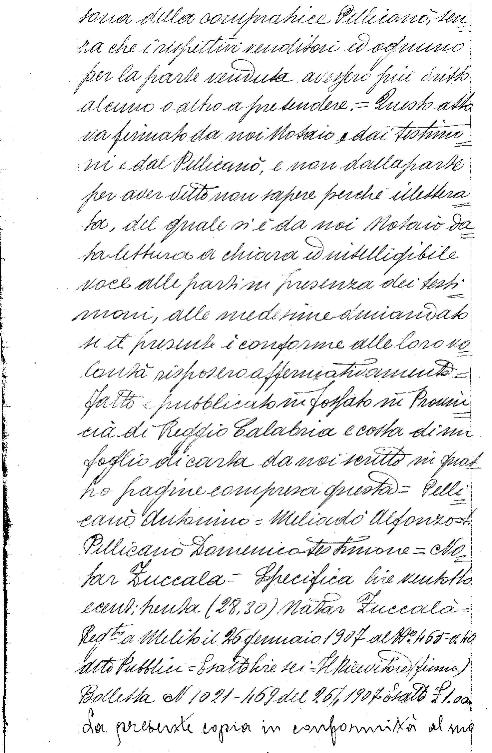 sona della compratrice Pellicanò, sen=
za che i rispettivi venditori ed ognuno
per la parte venduta avessero più dritto
alcuno o altro a pretendere. = Questo atto
va firmato da noi Notaio e dai testimo=
ni e dal Pellicanò, e non dalla parte
per aver detto non sapere perchè illettera=
ta, del quale si è da noi Notaio da=
ta lettura a chiara ed intelligibile
voce alle parti in presenza dei testi=
moni, alle medesime
se il presente è conforme alle loro vo=
lontà risposero affermativamente =
Fatto e pubblicato in Fossato in Provin=
cia di Reggio Calabria e costa di un
foglio di carta da noi scritto in quat=
tro pagine compresa questa = Pelli=
canò Antonino = Meliadò Alfonzo =
Pellicanò Domenico testimone = No=
tar Zuccalà - Specifica lire ventotto
e cent: trenta (28,30) Notar Zuccalà =
Reg.to a Melito il 26 gennaio 1907 al N° 465
atto Pubblici = Esatto lire sei = Il Ricevitore (firma)
Bolletta N 1021 - 469 del 26/1 1907 Esatto £ 1.00
La presente copia in conformità al suo